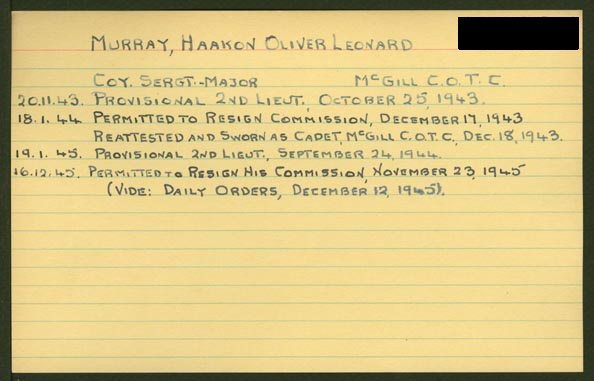 MURRAY, HAAKON OLIVER LEONARD
COY. SERGT.-MAJOR McGILL C.O.T.C.
20.11.43. PROVISIONAL 2ND LIEUT., OCTOBER 25, 1943.
18.1.44. PERMITTED TO RESIGN COMMISSION, DECEMBER 17, 1943
REATTESTED AND SWORN AS CADET, McGILL C.O.T.C., DEC. 18, 1943.
19.1.45. PROVISIONAL 2ND LIEUT., SEPTEMBER 24, 1944.
16.12.45. PERMITTED TO RESIGN HIS COMMISSION, NOVEMBER 23, 1945
(VIDE: DAILY ORDERS, DECEMBER 12, 1945).